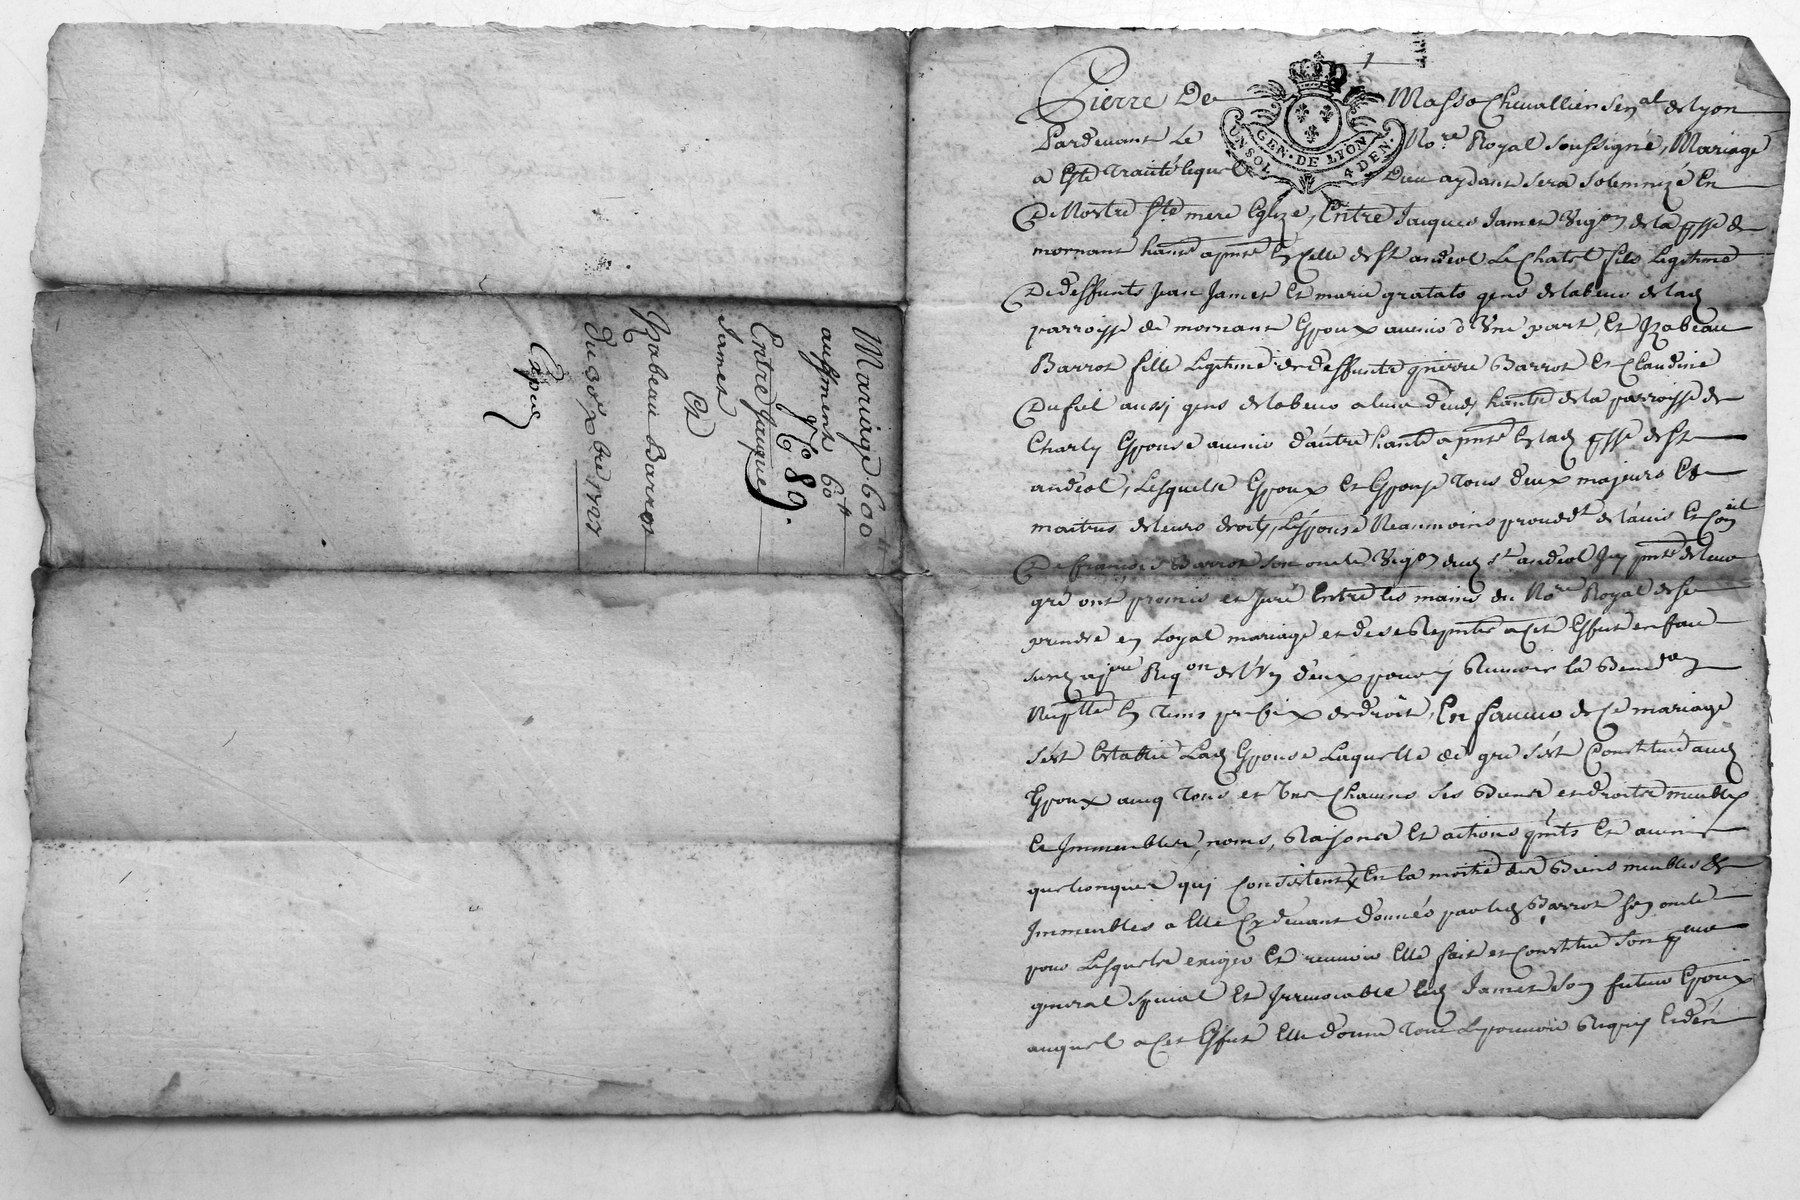 Mariage 600
augment 60ᵗᵗ
fº 89.
Entre Jacques
Jamet
Et
Izabeau Barrot
Du 30ᵉ xbre 1727
Expᵉᵉ
1
GEN. DE LYON
UN SOL 4 DEN.
Pierre De Masso Chevallier Senᵃˡ de Lyon
Pardevant Le Noʳᵉ Royal soussigné, Mariage
a Esté Traité lequel Dieu aydant sera solemnizé En
De Nostre Sᵗᵉ mere Eglize, Entre Jacques Jamet Vigᵒⁿ de la psse de
mornant habᵗ a pnt En Celle de St andeol Le Chatel fils Legitime
De deffunts Jean Jamet Et marie gratalo gens de labeur de lad
parroisse de mornant Epoux avenir d'Une part, Et Izabeau
Barrot fille Legitime de deffunts pierre Barrot Et Claudine
Dufiel aussi gens de labeur a luire d'eud habᵗ de la parroisse de
Charly Epouse avenir d'autre habᵗ a pnt En lad psse de St
andeol, Lesquels Epoux Et Epouse Tous deux majeurs Et
maitres de leurs droits, L'Epouse Neanmoins proced.ᵗ de l'avis Et Conᵉⁱˡ
De francois Barrot son oncle Vigᵒⁿ dud Sᵗ andeol Icy pnt de leur
gré ont promis et Juré Entre les mains du Noʳᵉ Royal de se
prendre en Loyal mariage et de se Repnter a Cet Effet en face
sur la pʳᵉ Reqᵒⁿ de l'Un d'eux pour y Recevoir la Benedᵒⁿ
Nuptᵉ En Tems prefix de droit, En faveur de Ce mariage
s'est Establie Lad Epouse Laquelle de gré s'est Constitué aud
Epoux avecq Tous et Uns Chacuns ses Biens et droits meubles
Et Immeubles, noms, Raisons Et actions pnts Et avenir
quelconques qui Consistent En la moitié des Biens meubles &
Immeubles a Elle Cy devant donnés par led Barrot son oncle
pour Lesquels exiger Et recevoir Elle fait et Constitue son pᵉᵘʳ
general special Et Irrevocable led Jamet son futur Epoux
auquel a Cet Effet Elle donne Tout Le pouvoir Requis